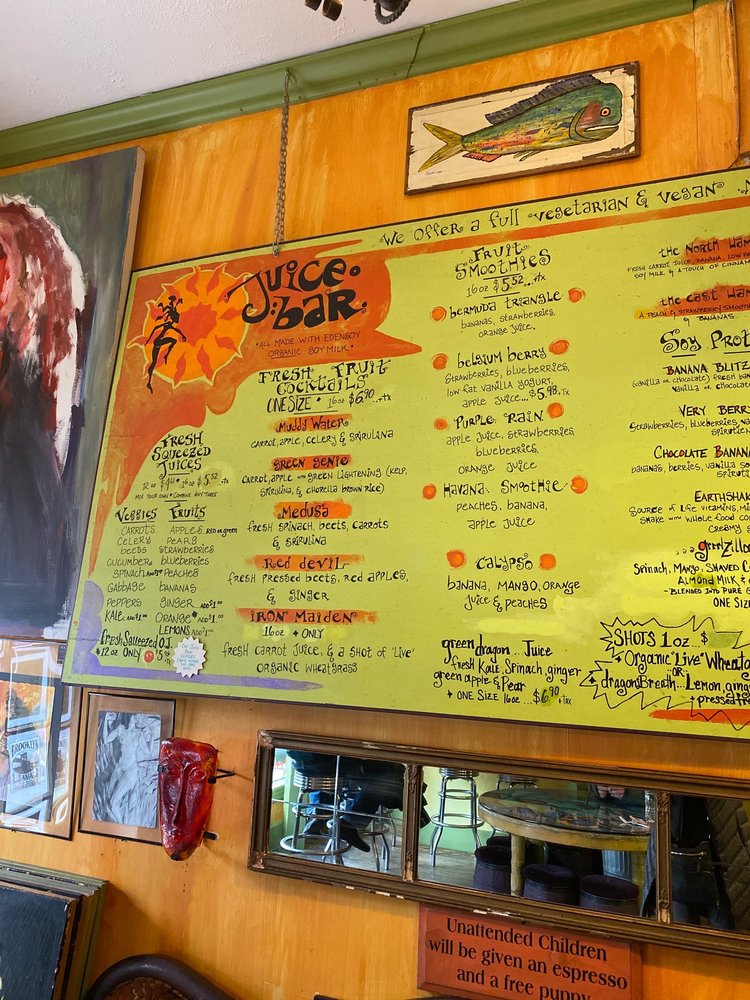 We Offer a full vegetarian & vegan
Juice
bar
ALL MADE WITH EDENSOY
ORGANIC SOY MILK
FRESH FRUIT
COCKTAILS
ONE SIZE 16 oz $6.90 ..+tx
Muddy Water
CARROT, APPLE, CELERY & SPIRULINA
green genie
CARROT, APPLE with GREEN LIGHTENING (KELP,
SPIRULINA, & CHORELLA BROWN RICE)
Medusa
FRESH SPINACH, BEETS, CARROTS
& SPIRULINA
Red devil
FRESH PRESSED BEETS, RED APPLES,
& GINGER
IRON MAIDEN
16oz ONLY
FRESH CARROT JUICE, & A SHOT OF 'LIVE'
ORGANIC WHEATGRASS
FRESH
SQUEEZED
JUICES
12 oz 16 oz $5.52 ..+tx
MIX YOUR OWN COMBINE ANY THREE
VEGGIES FRUITS
CARROTS APPLES RED OR GREEN
CELERY PEARS
BEETS STRAWBERRIES
CUCUMBER BLUEBERRIES
SPINACH PEACHES
CABBAGE BANANAS
PEPPERS GINGER ADD $1.00
KALE ADD $1.00 ORANGE ADD $1.00
LEMONS ADD $1.00
Fresh Squeezed O.J.
12 oz ONLY
FRUIT
SMOOTHIES
16 oz $5.52 ...+tx
bermuda TRIANGLE
bananas, strawberries,
orange juice,
belgium berry
STRAWBERRIES, BLUEBERRIES,
low fat vanilla yogurt,
apple juice...$5.98..+tx
Purple Rain
apple juice, strawberries
blueberries,
orange juice
Havana Smoothie
peaches, banana,
apple juice
CALYPSO
banana, mango, orange
juice & peaches
green dragon...Juice
fresh Kale, Spinach, ginger
green apple & Pear
ONE SIZE 16oz...$6.90 +tax
the NORTH HAM
FRESH CARROT JUICE, BANANA, LOW FA
SOY MILK & A TOUCH OF CINNAM
the east HAM
A PEACH & STRAWBERRY SMOOTH
& BANANAS
SOY PROT
BANANA BLITZ
(VANILLA OR CHOCOLATE) FRESH BAN
VERY BERR
STRAWBERRIES, BLUEBERRIES, VAN
CHOCOLATE BANANA
BANANAS, BERRIES, VANILLA SO
EARTHSHAK
SOURCE OF LIFE VITAMINS, MI
SHAKE WITH WHOLE FOOD CO
CREAMY
grrrlzilla
SPINACH, MANGO, SHAVED CO
ALMOND MILK &
~BLENDED INTO PURE G
ONE SIZE
SHOTS 1oz...$
Organic "Live" Wheatg
OR
dragonsBreath...Lemon, ging
pressed fr
Unattended Children
will be given an espresso
and a free puppy